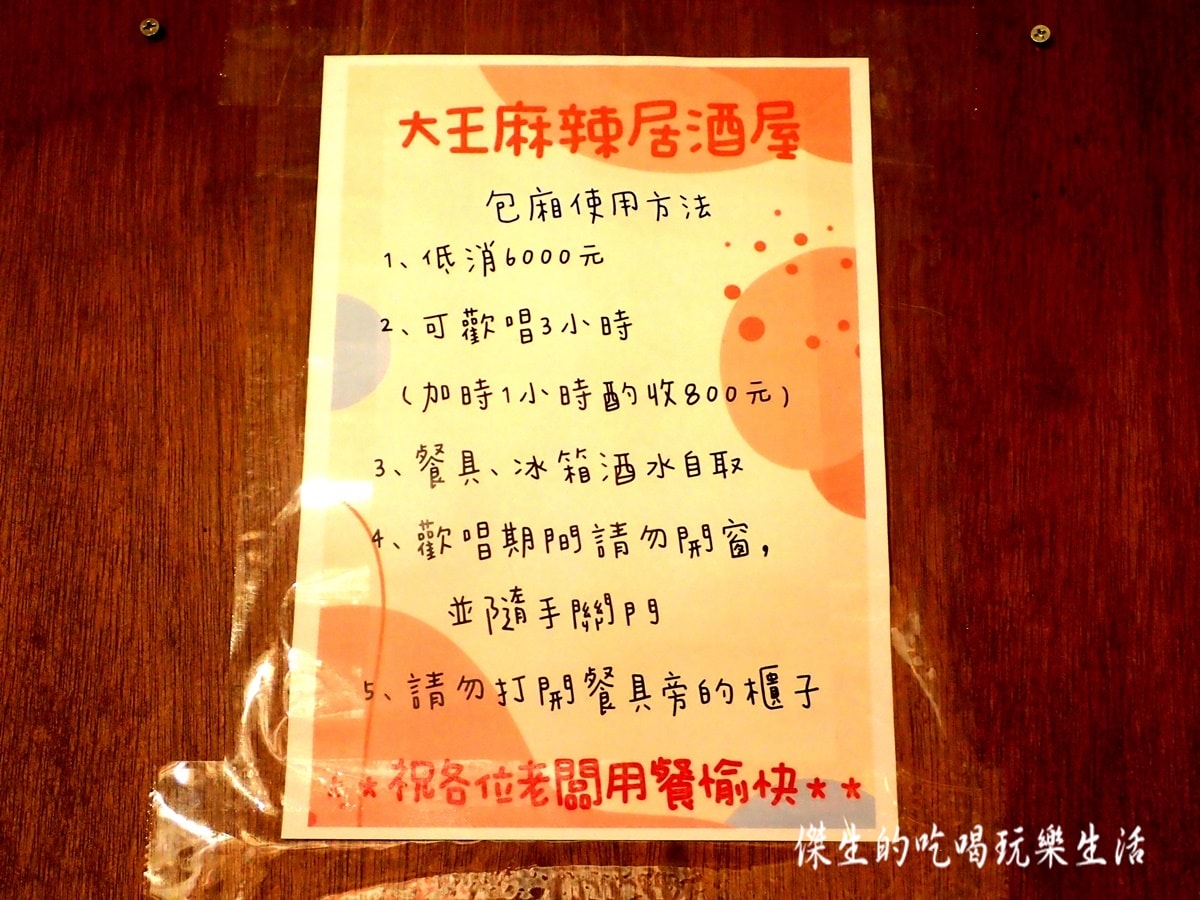 大王麻辣居酒屋
包廂使用方法
1、低消6000元
2、可歡唱3小時
(加時1小時酌收800元)
3、餐具、冰箱酒水自取
4、歡唱期間請勿開窗,
並隨手關門
5、請勿打開餐具旁的櫃子
★★祝各位老闆用餐愉快★★
傑生的吃喝玩樂生活